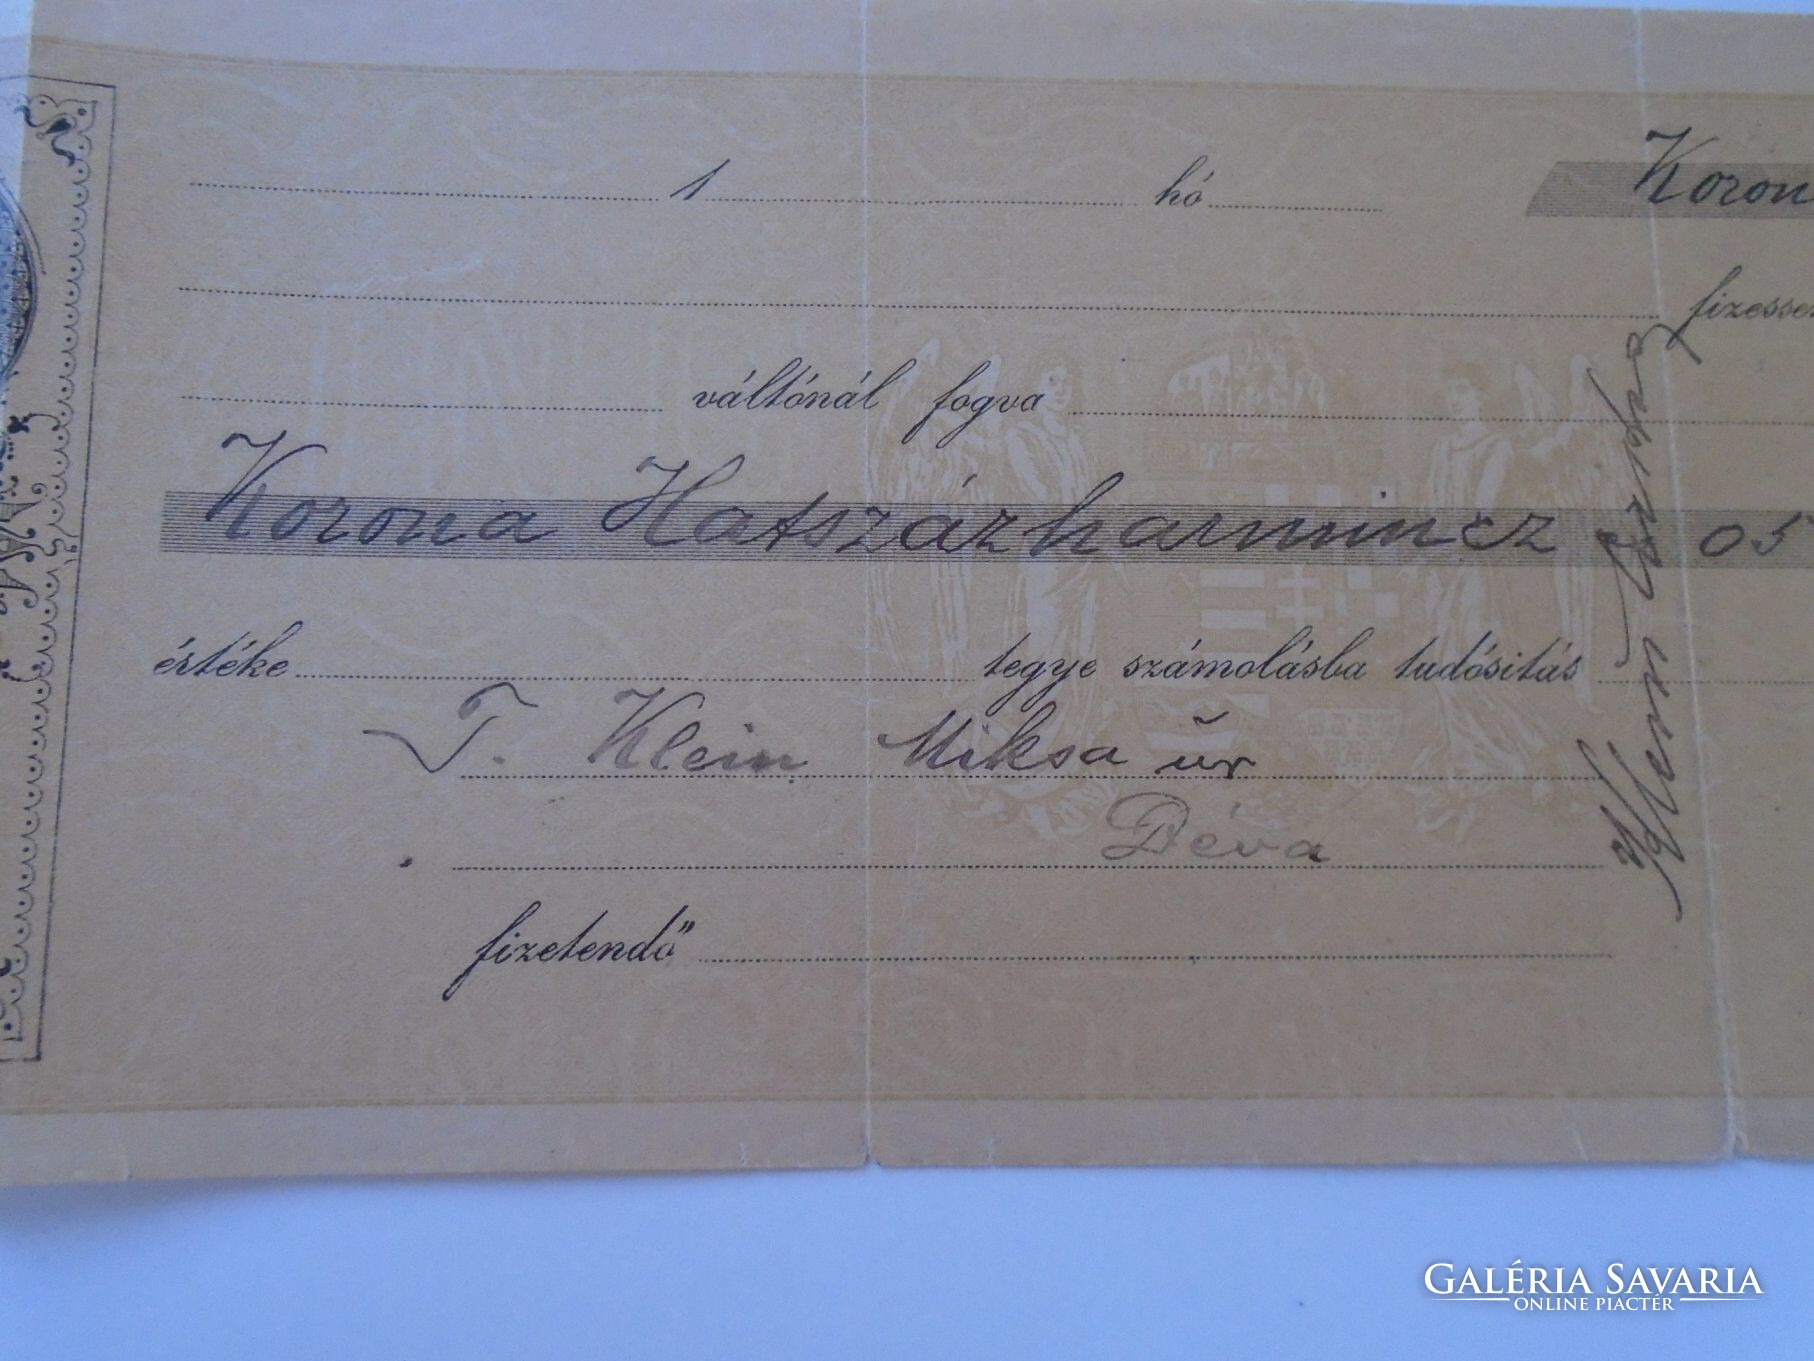 1 hó Koron
fizessen
váltónál fogva
Korona Hatszázharmincz 05
értéke tegye számolásba tudósitás
T. Klein Miksa úr
Déva
fizetendő
GALÉRIA SAVARIA
ONLINE PIACTÉR